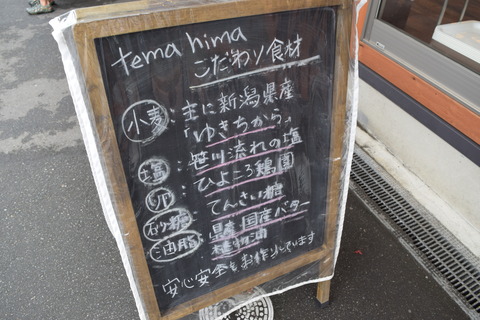 tema hima
こだわり食材
小麦：主に新潟県産
「ゆきちから」
塩：笹川流れの塩
卵：ひよころ鶏園
砂糖：てんさい糖
油脂：県産 国産バター
植物油
安心安全をお作りしています